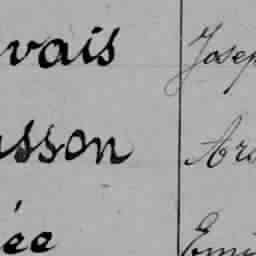 vais Josep
sson Aro
ée Emi